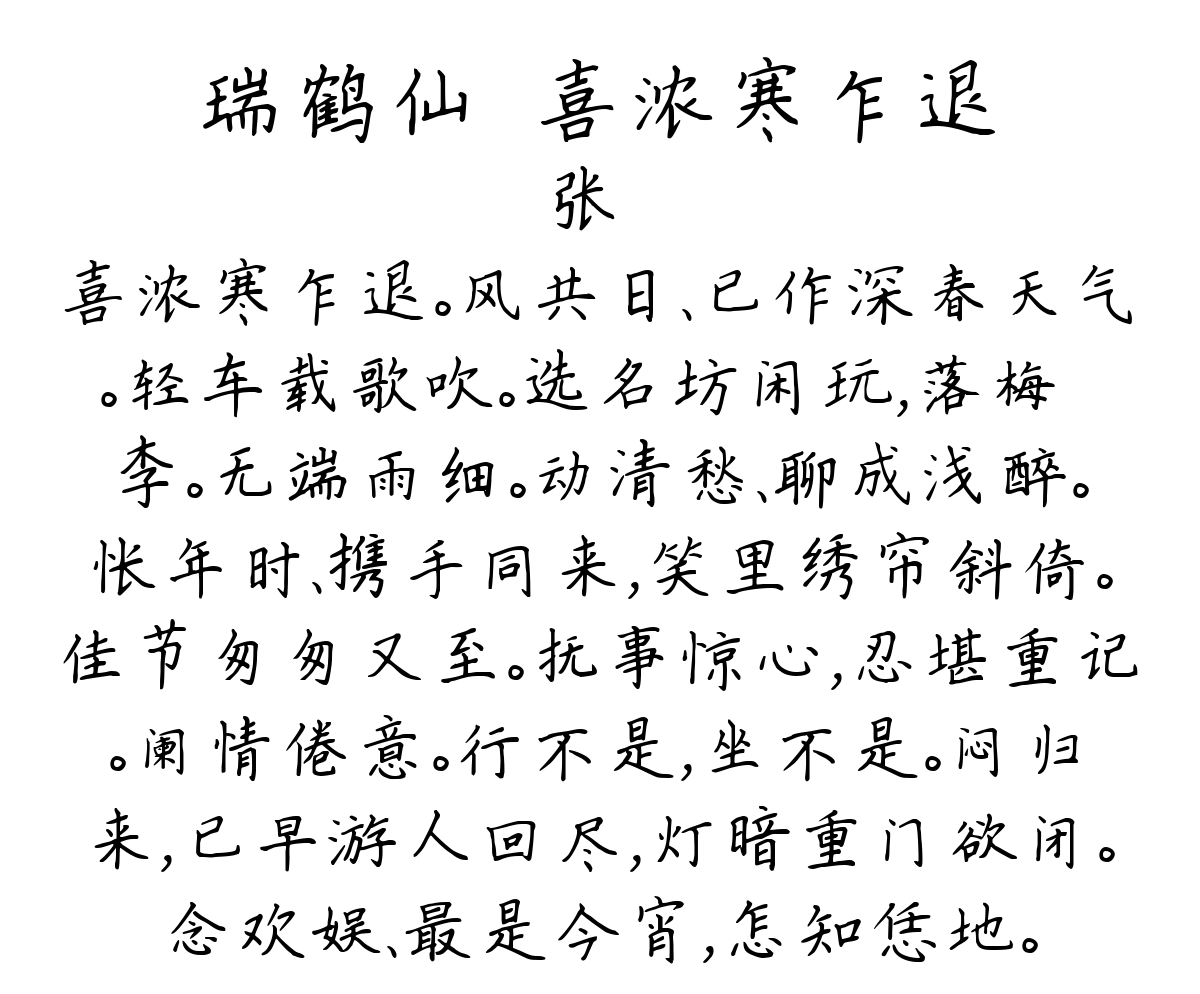 瑞鹤仙 喜浓寒乍退
张
喜浓寒乍退。风共日、已作深春天气
。轻车载歌吹。选名坊闲玩,落梅
李。无端雨细。动清愁、聊成浅醉。
怅年时、携手同来,笑里绣帘斜倚。
佳节匆匆又至。抚事惊心,忍堪重记
。阑情倦意。行不是,坐不是。闷归
来,已早游人回尽,灯暗重门欲闭。
念欢娱、最是今宵,怎知恁地。